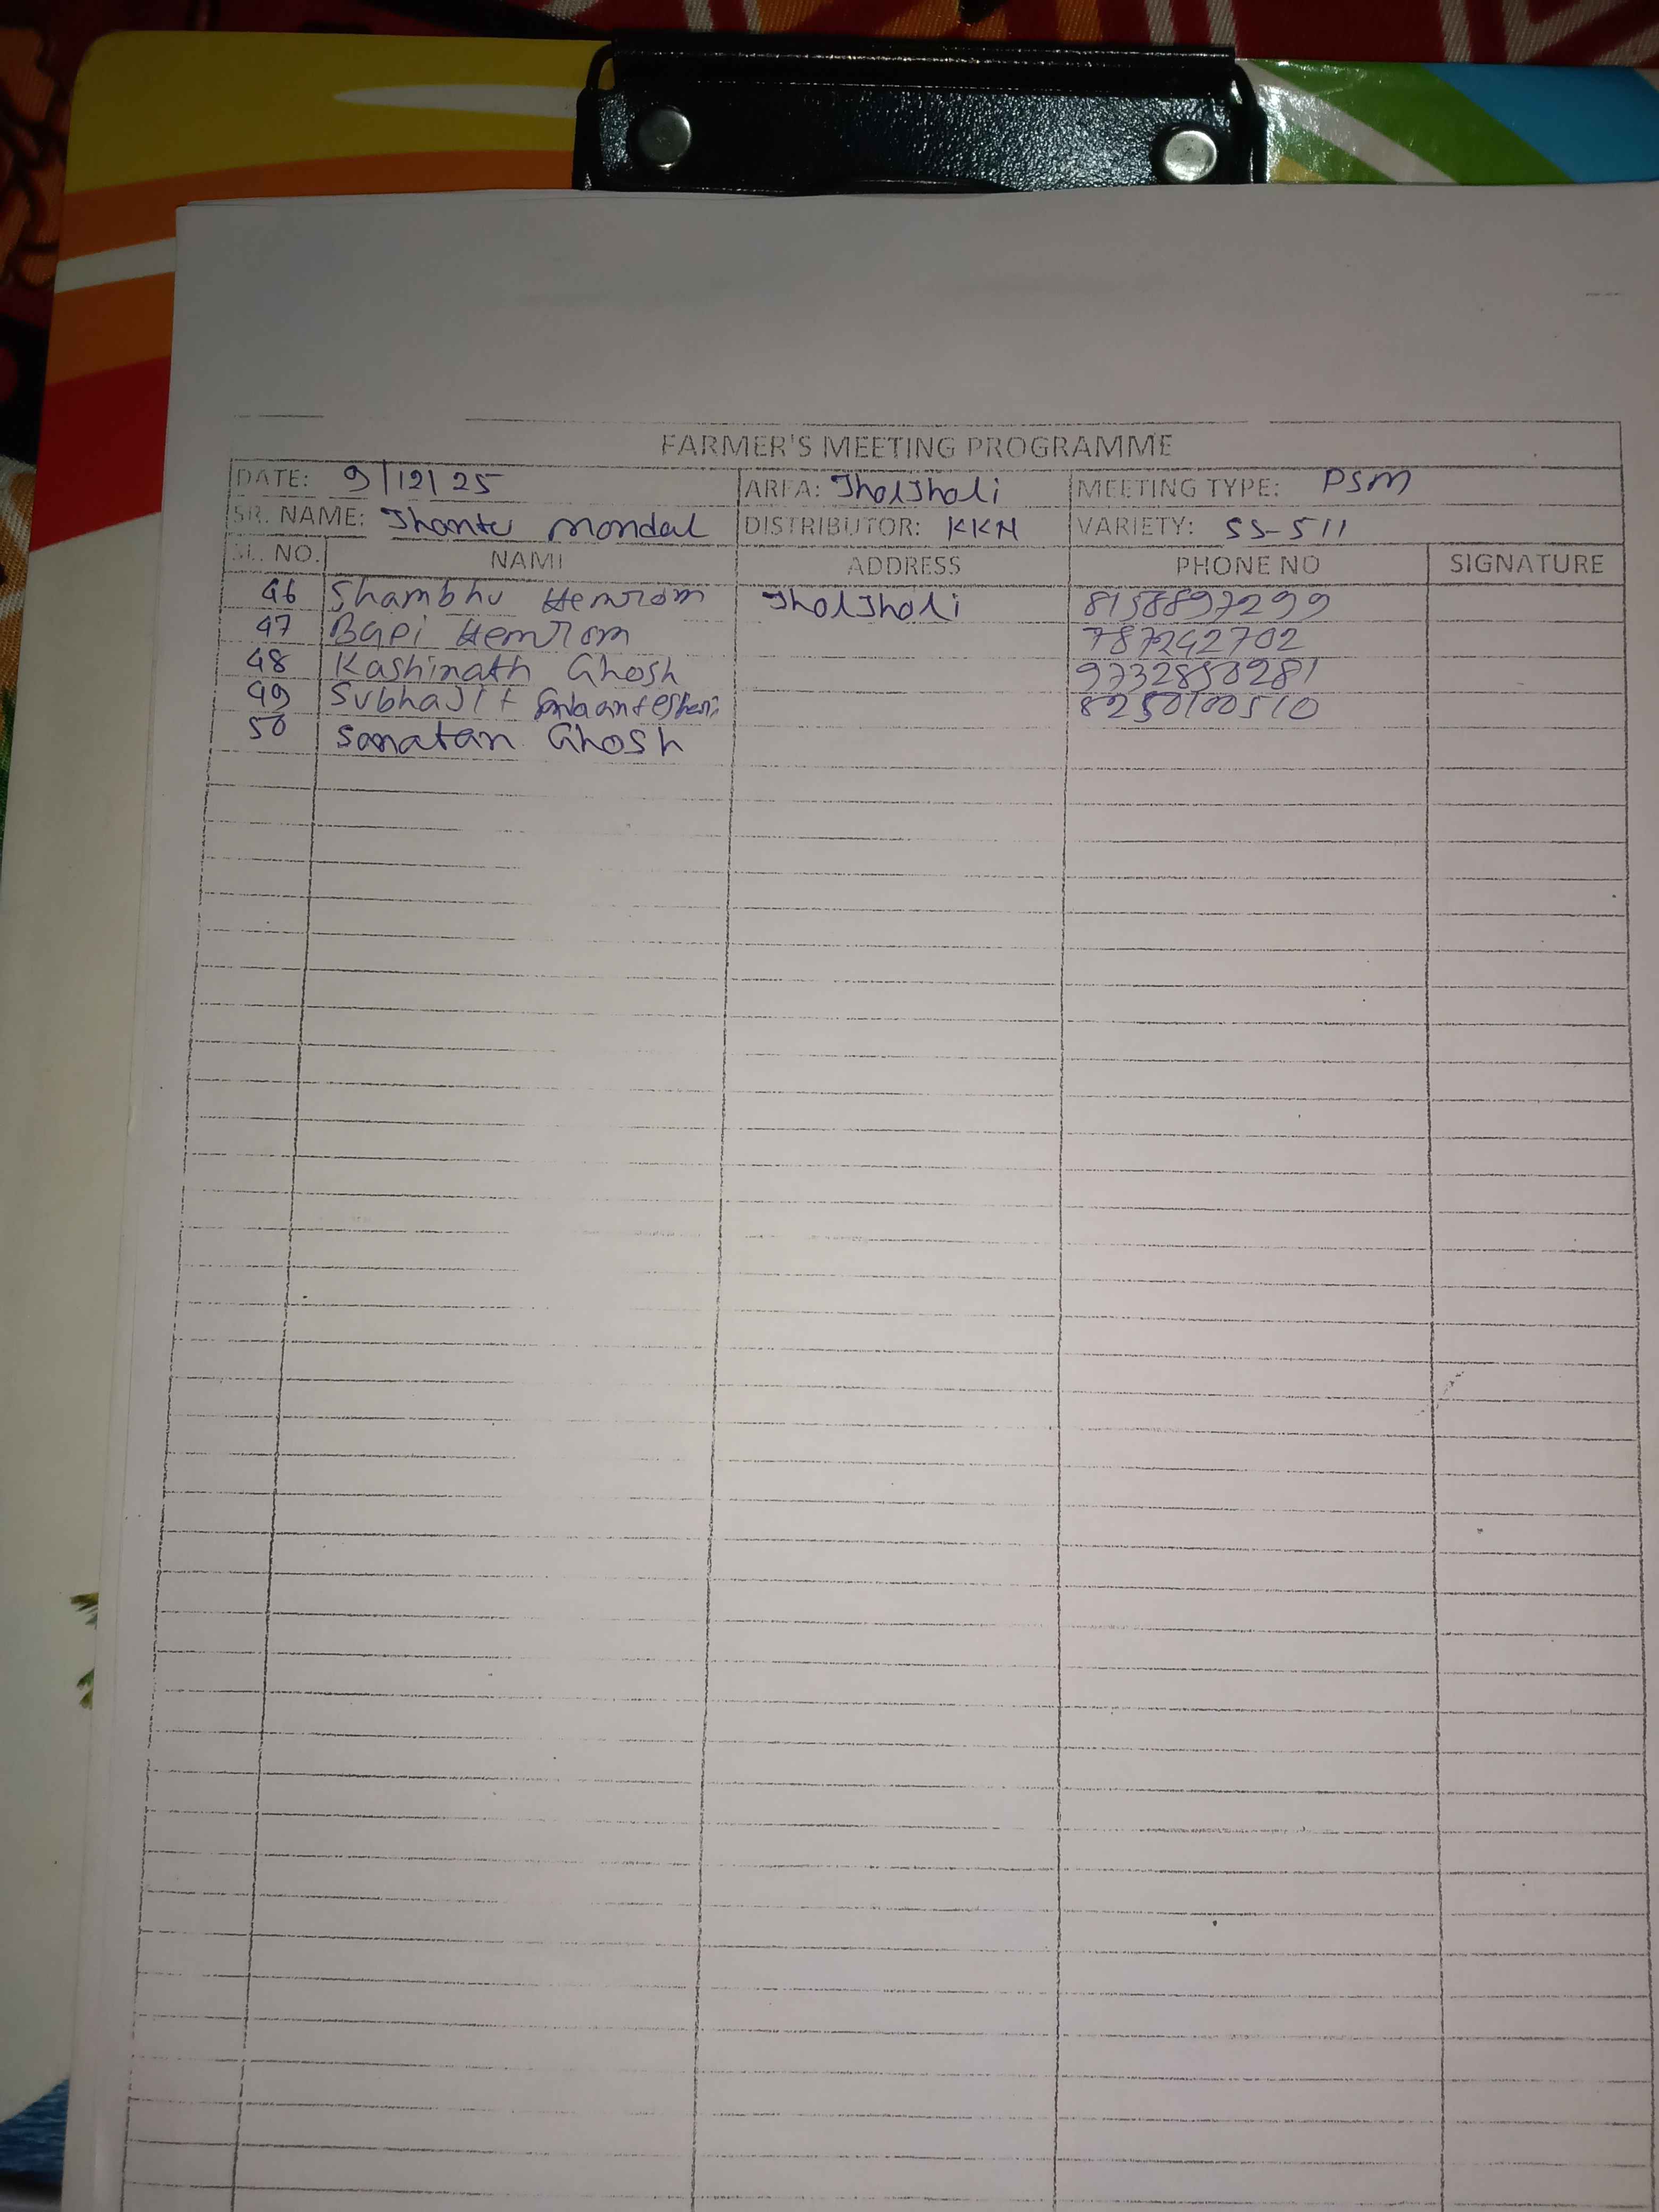 FARMER'S MEETING PROGRAMME
DATE: 9/12/25 AREA: JholJholi MEETING TYPE: PSM
SR. NAME: Jhantu mondal DISTRIBUTOR: KKN VARIETY: SS-511
SL. NO. NAME ADDRESS PHONE NO SIGNATURE
46 Shambhu Hemrom JholJholi 8158897299
47 Bapi Hemrom 787242702
48 Kashinath Ghosh 9732850281
49 SubhaJit 8250100510
50 Sanatan Ghosh